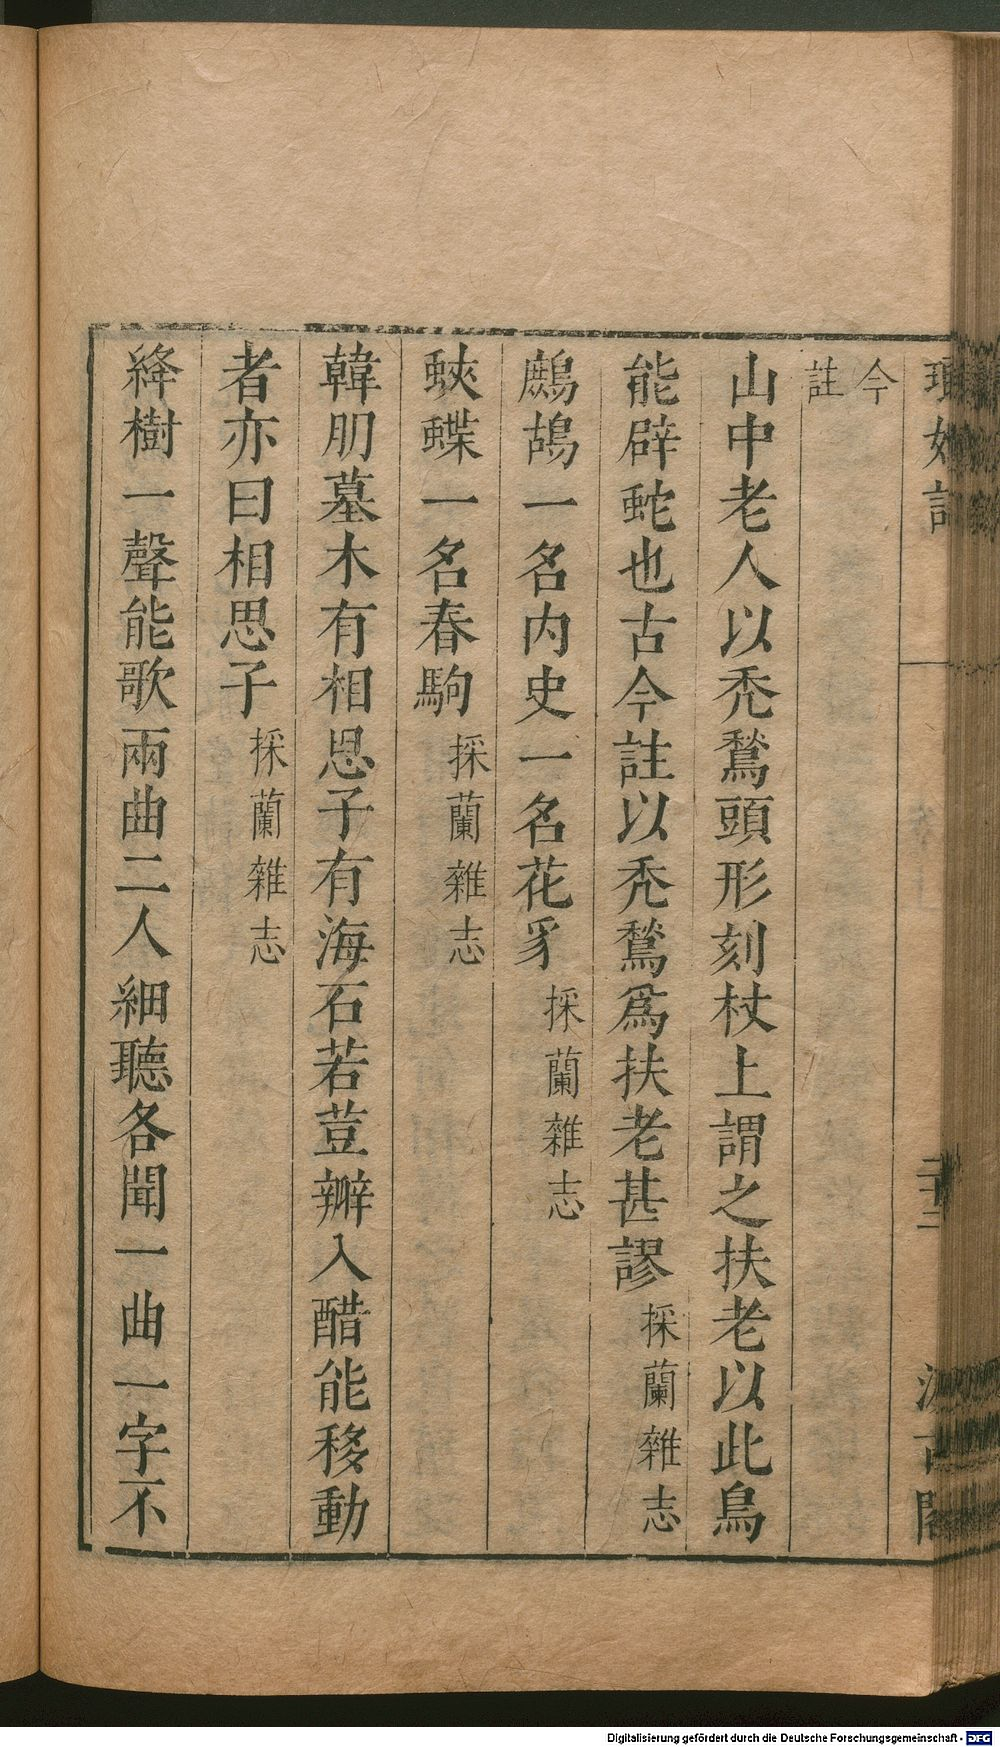 今
註
山中老人以禿鶖頭形刻杖上謂之扶老以此鳥
能辟蛇也古今註以禿鶖爲扶老甚謬採蘭雜志
鷓鴣一名内史一名花豸採蘭雜志
蛺蝶一名春駒採蘭雜志
韓朋墓木有相思子有海石若荳瓣入醋能移動
者亦曰相思子採蘭雜志
絳樹一聲能歌兩曲二人細聽各聞一曲一字不
Digitalisierung gefördert durch die Deutsche Forschungsgemeinschaft - DFG